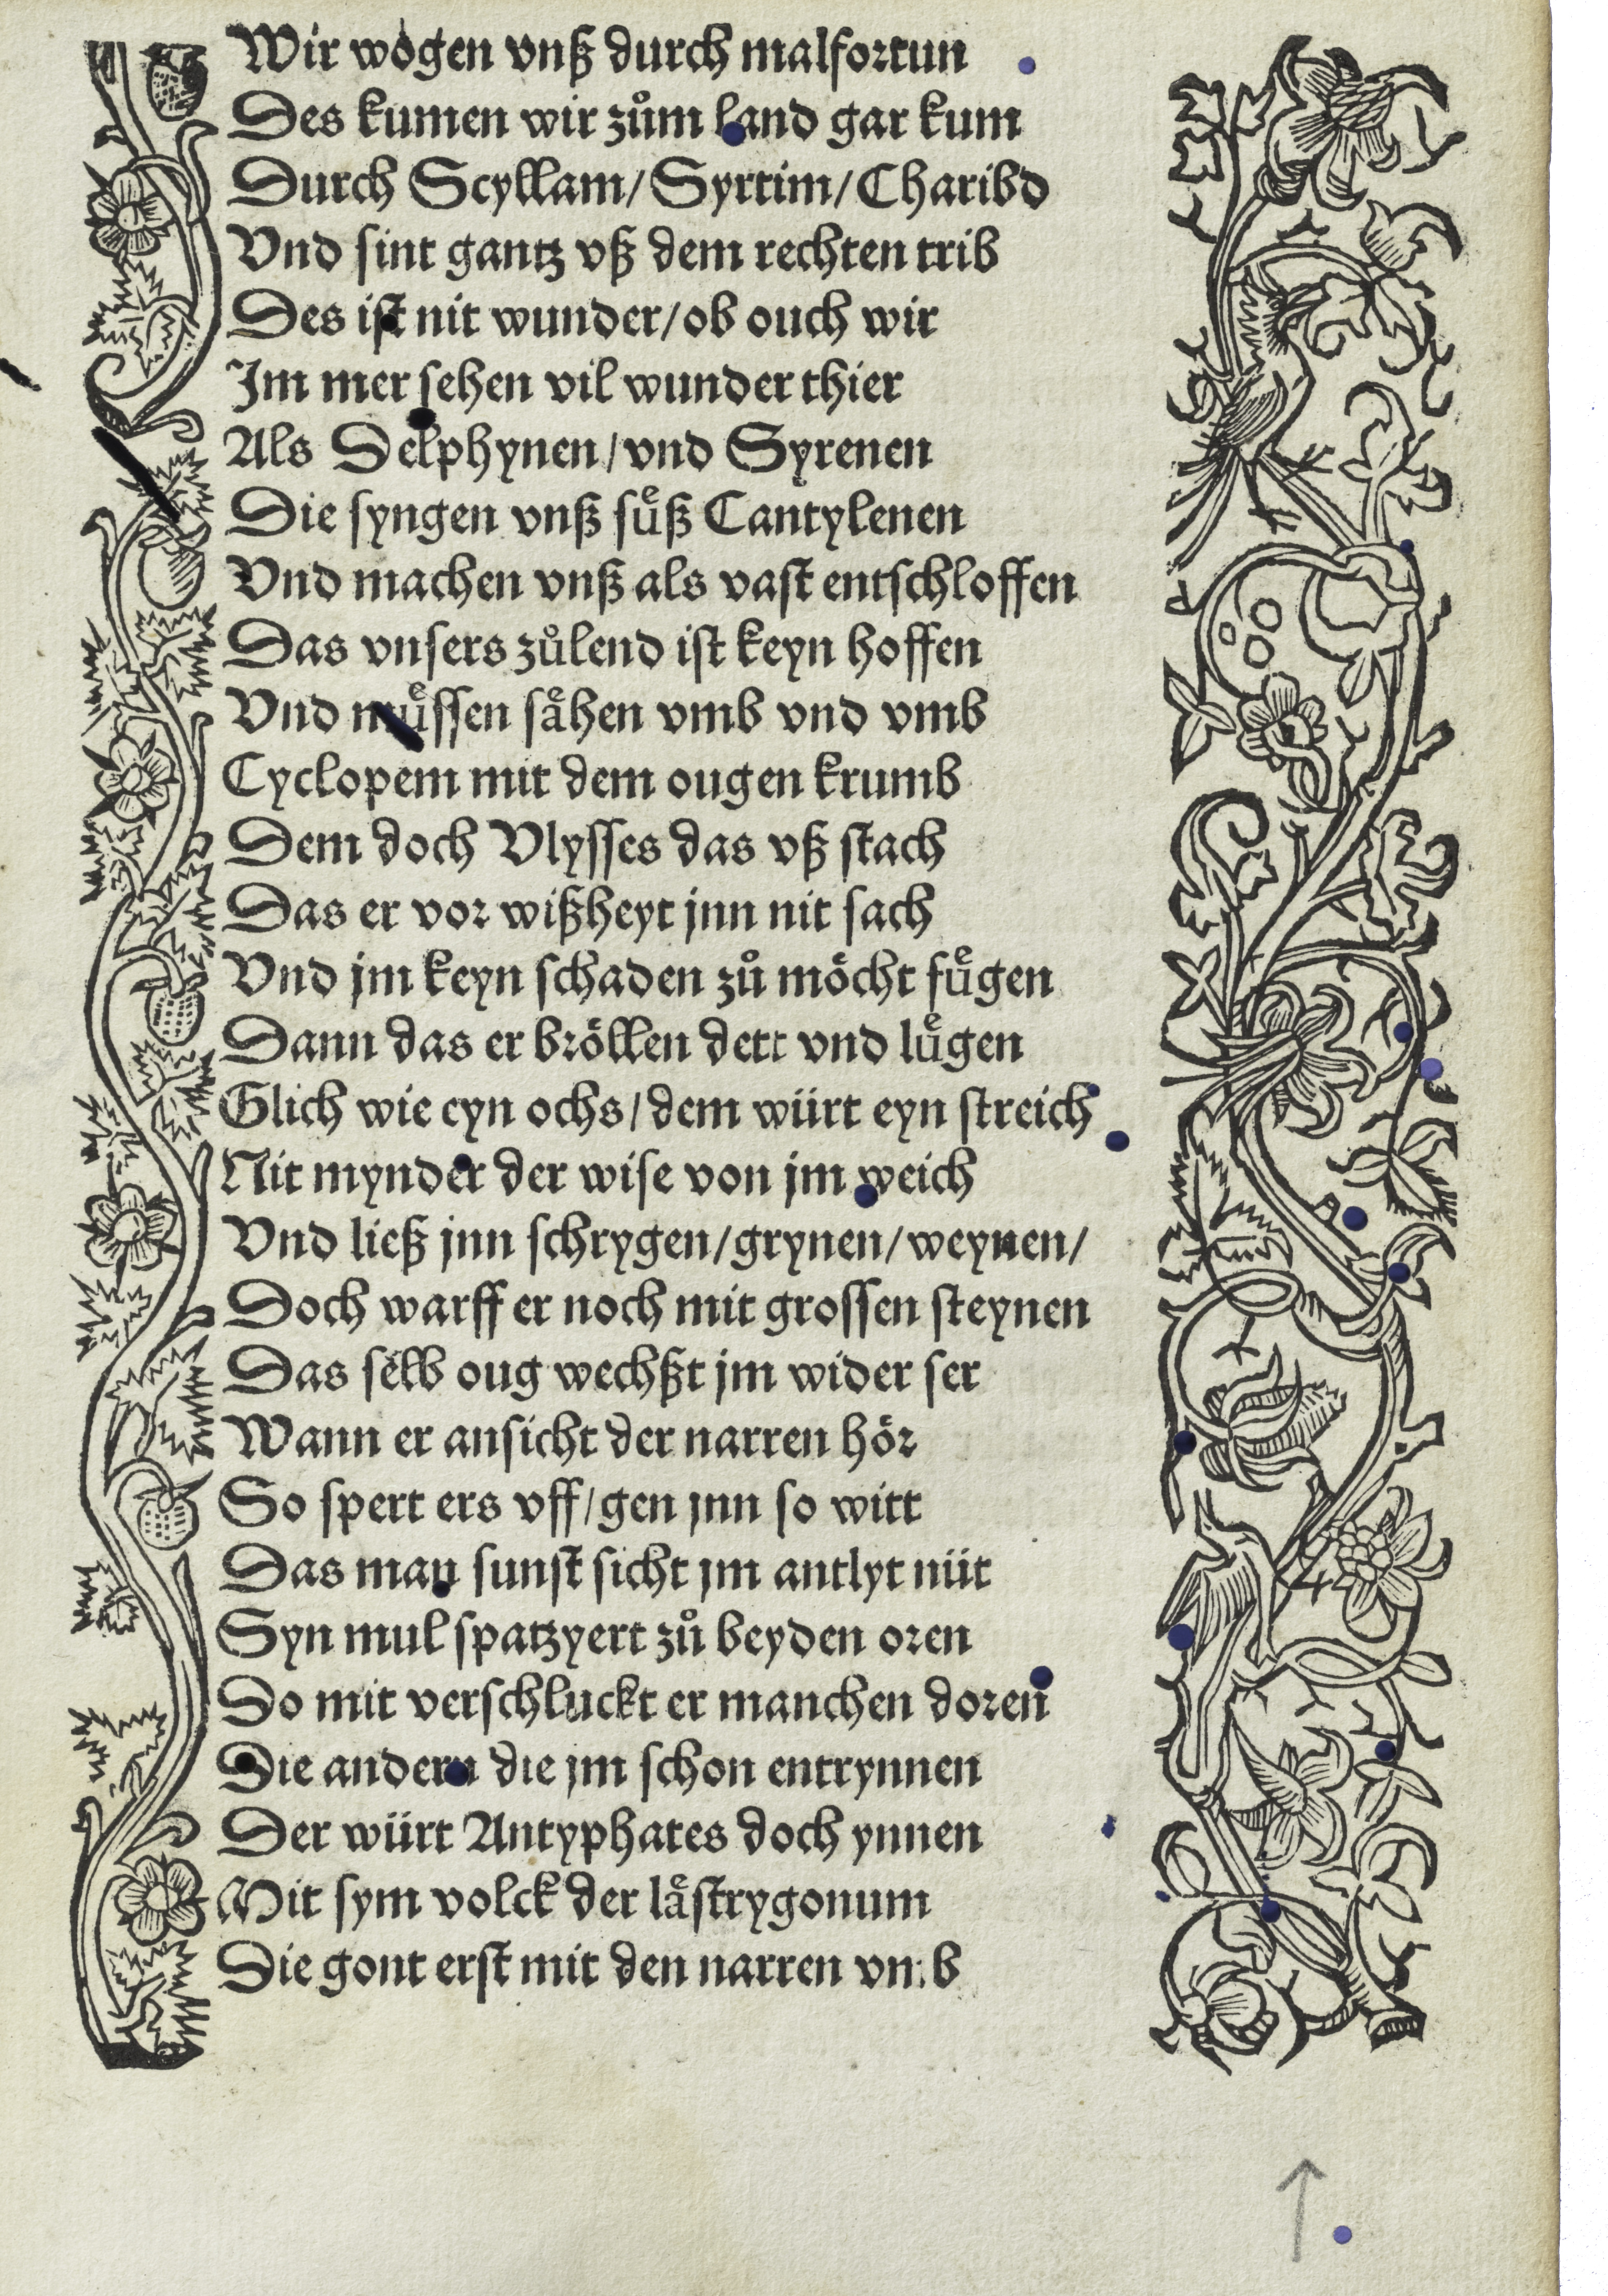 Wir wogen vnß durch malfortun
Des kumen wir zuͦm land gar kum
Durch Scyllam/ Syrtim/ Charibd
Vnd sint gantz vß dem rechten trib
Des ist nit wunder/ ob ouch wir
Im mer sehen vil wunder thier
Als Delphynen/ vnd Syrenen
Die syngen vnß suͤß Cantylenen
Vnd machen vnß als vast entschloffen
Das vnsers zuͦlend ist keyn hoffen
Vnd muͤssen saͤhen vmb vnd vmb
Cyclopem mit dem ougen krumb
Dem doch Vlysses das vß stach
Das er vor wißheyt jnn nit sach
Vnd jm keyn schaden zuͦ moͤcht fuͤgen
Dann das er broͤllen dett vnd luͤgen
Glich wie eyn ochs/ dem würt eyn streich
Nit mynder der wise von jm weich
Vnd ließ jnn schrygen/ grynen/ weynen/
Doch warff er noch mit grossen steynen
Das selb oug wechßt jm wider ser
Wann er ansicht der narren hoͤr
So spert ers vff/ gen jnn so witt
Das man sunst sicht jm antlyt nüt
Syn mul spatzyert zuͦ beyden oren
Do mit verschluckt er manchen doren
Die andern die jm schon entrynnen
Der würt Antyphates doch ynnen
Mit sym volck der laͤstrygonum
Die gont erst mit den narren vmb